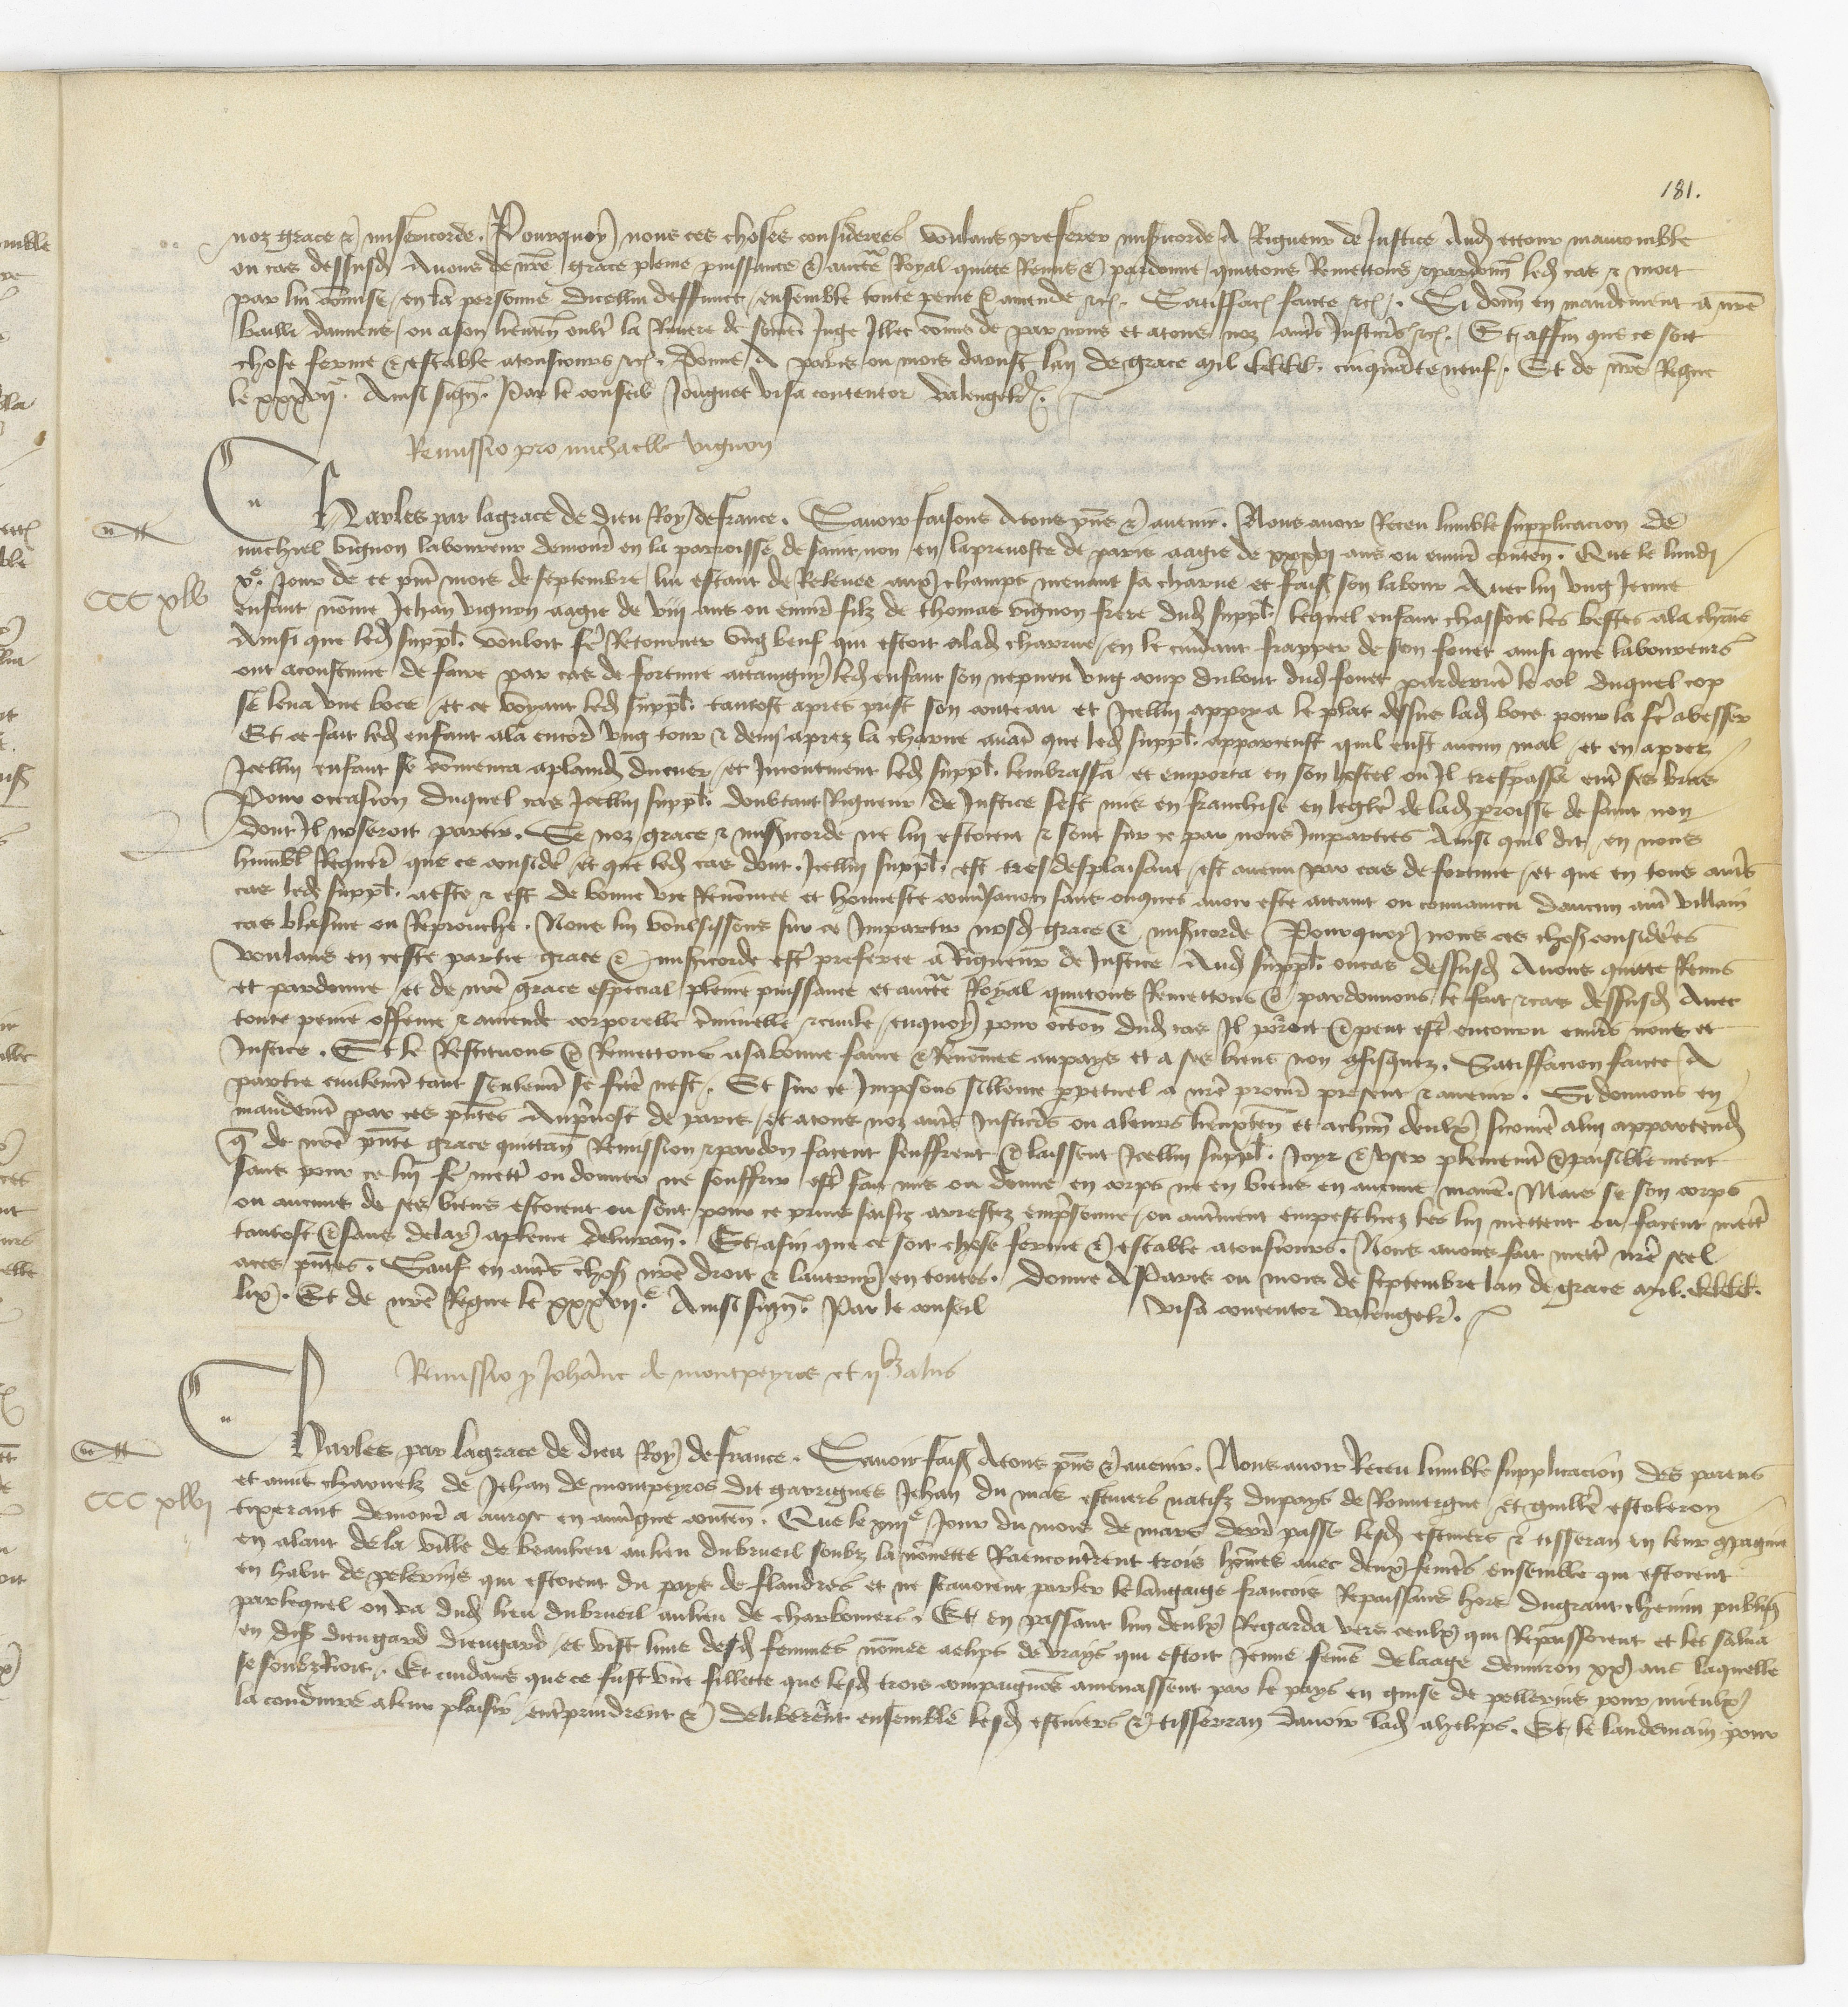 181.
noz grace et misericorde. Pourquoy nous ces choses considerees voulans preferer misericorde a Rigueur de Justice Aud
ou cas dessusd Avons de nre grace pleine puissance et aucte Royal quitte Remis et pardonne quittons Remettons et pardonn led cas et mort
par lui commise en la personne dicellui deffunct ensemble toute peine et amende etc. Satisfac faicte etc. Si donn en mandement a nre
bailli damiens ou a son lieuten oultre la Riviere de Somme Juge illec commis de par nous et a tous noz autres Justiciers etc. Et affin que ce soit
chose ferme et estable a tousiours etc. Donne A paris ou mois daoust lan de grace mil CCCC. cinquante neuf. Et de nre Regne
le xxxvii. Ainsi sign. Par le conseil Jouguet visa contentor valengelr.
Remissio pro michaelle vignon
CCC xlv
Charles par la grace de dieu Roy de france. Savoir faisons A tous pns et avenir. Nous avoir Receu lumble supplicacion de
michiel vignon laboureur demour en la parroisse de saint non en la prevoste de paris aagie de xxxvi ans ou environ conten. Que le lundi
xe. jour de ce pnt mois de septembre lui estant de Relevee aux champs menant sa charue et fais son labour Avec lui ung Jeune
enfant nomme Jehan vignon aagie de viii ans ou environ filz de thomas vignon frere dud suppl. lequel enfant chassoit les bestes a la charue
Ainsi que led suppl. vouloit fe Retourner ung beuf qui estoit a lad charrue en le cuidant frapper de son fouet ainsi que laboureurs
ont acoustume de faire par cas de fortune attaingny led enfant son nepveu ung coup du bout dud fouet par derriere le col duquel cop
se leva une boce et ce voyant led suppl. tantost apres prist son couteau et Icellui appoya le plat dessus lad boce pour la fe abesser
Et ce fait led enfant ala encore ung tour et demi aprez la charue avant que led suppl. apparceust quil eust aucun mal et en aprez
Icellui enfant se commenca a plaindre du cuer et Incontinent led suppl. lembrassa et emporta en son hostel ou Il trespassa entre ses bras
Pour occasion duquel cas Icellui suppl. doubtant Rigueur de Justice sest mis en franchise en leglise de lad parroisse de saint non
dont Il noseroit partir. Se noz grace et misericorde ne lui estoient et sont sur ce par nous Imparties Ainsi quil dit en nous
humbl Requer que ce consider et que led cas dont Icellui suppl. est tres desplaisant est avenu par cas de fortune et que en tous autres
cas led suppl. a este et est de bonne vie Renommee et honneste conversacion sans onques avoir este attaint ou convaincu daucun autre villain
cas blasme ou Reprouche. Nous lui voulsissons sur ce Impartir nosd grace et misericorde Pourquoy nous ces choses considerees
voulans en ceste partie grace et misericorde estre preferee a Rigueur de Justice Aud suppl. ou cas dessusd Avons quitte Remis
et pardonne et de nre grace especial pleine puissance et aucte Royal quittons Remettons et pardonnons le fait et cas dessusd Avec
toute peine offense et amende corporelle criminelle et civile enquoy pour occasion dud cas Il porroit et peut estre encouru envers nous et
Justice. Et le Restituons et Remettons a sa bonne fame et Renommee au pays et a ses biens non confisquez. Satisfacion faicte A
partie civilement tant seulement se faicte nest. Et sur ce Imposons sillence perpetuel a nre procureur present et avenir. Si donnons en
mandement par ces pntes Au prevost de paris et a tous noz autres Justiciers ou a leurs lieuxten et a chun deulx si comme a lui appartend
que de nre pnte grace quittan Remission et pardon facent seuffrent et laissent Icellui suppl. Joyr et user plainement et paisiblement
sans pour ce lui fe mettre ou donner ne souffrir estre fait mis ou donne en corps ne en biens en aucune maniere. Mais se son corps
ou aucuns de ses biens estoient ou sont pour ce prins saisiz arrestez emprisonne ou autrement empeschiez les lui mettent ou facent mettre
tantost et sans delay a pleine delivran. Et afin que ce soit chose ferme et estable a tousiours. Nous avons fait mettre nre seel
a ces pntes. Sauf en autres choses nre droit et lautruy en toutes. Donne A Paris ou mois de septembre lan de grace mil. CCCC.
lix. Et de nre Regne le xxxvii.e Ainsi sign. Par le conseil visa contentor valengelr.
Remissio p Johanne de montpeyros et iibz aliis
CCC xlvi
Charles par la grace de dieu Roy de france. Savoir fais A tous pns et avenir. Nous avoir Receu lumble supplicacion des parens
et amis charnelz de Jehan de montpeyros dit garrigues Jehan du mas estiviers natifz du pays de Rouvergue et guillem estoleron
tixerant demour a auroze en auvergne conten. Que le xiiie jour du mois de mars dernr passe lesd estiviers et tisseran en leur compagnie
en alant de la ville de beaulieu au lieu du brueil soubz la nonnette Raencontrerent trois hommes avec deux femmes ensemble qui estoient
en habit de pelerins qui estoient du pays de flandres et ne scavoient parler le langaige francois Repaissans hors du grant chemin publiq
par lequel on va dud lieu du brueil au lieu de charbonniers. Et en passant lun deulx Regarda vers ceulx qui Repaissoient et les salua
en dis dieu gard dieu gard et vist lune desd femmes nommee aelips de vrays qui estoit Jeune femme de laage denviron xx ans laquelle
se soubzRioit. Et cuidans que ce fust une fillette que lesd trois compaignons amenassent par le pays en guise de pellerins pour mieulx
la conduire a leur plaisir entreprindrent et delibererent ensemble lesd estiviers et tisserran davoir lad ahelips. Et le landemain pour